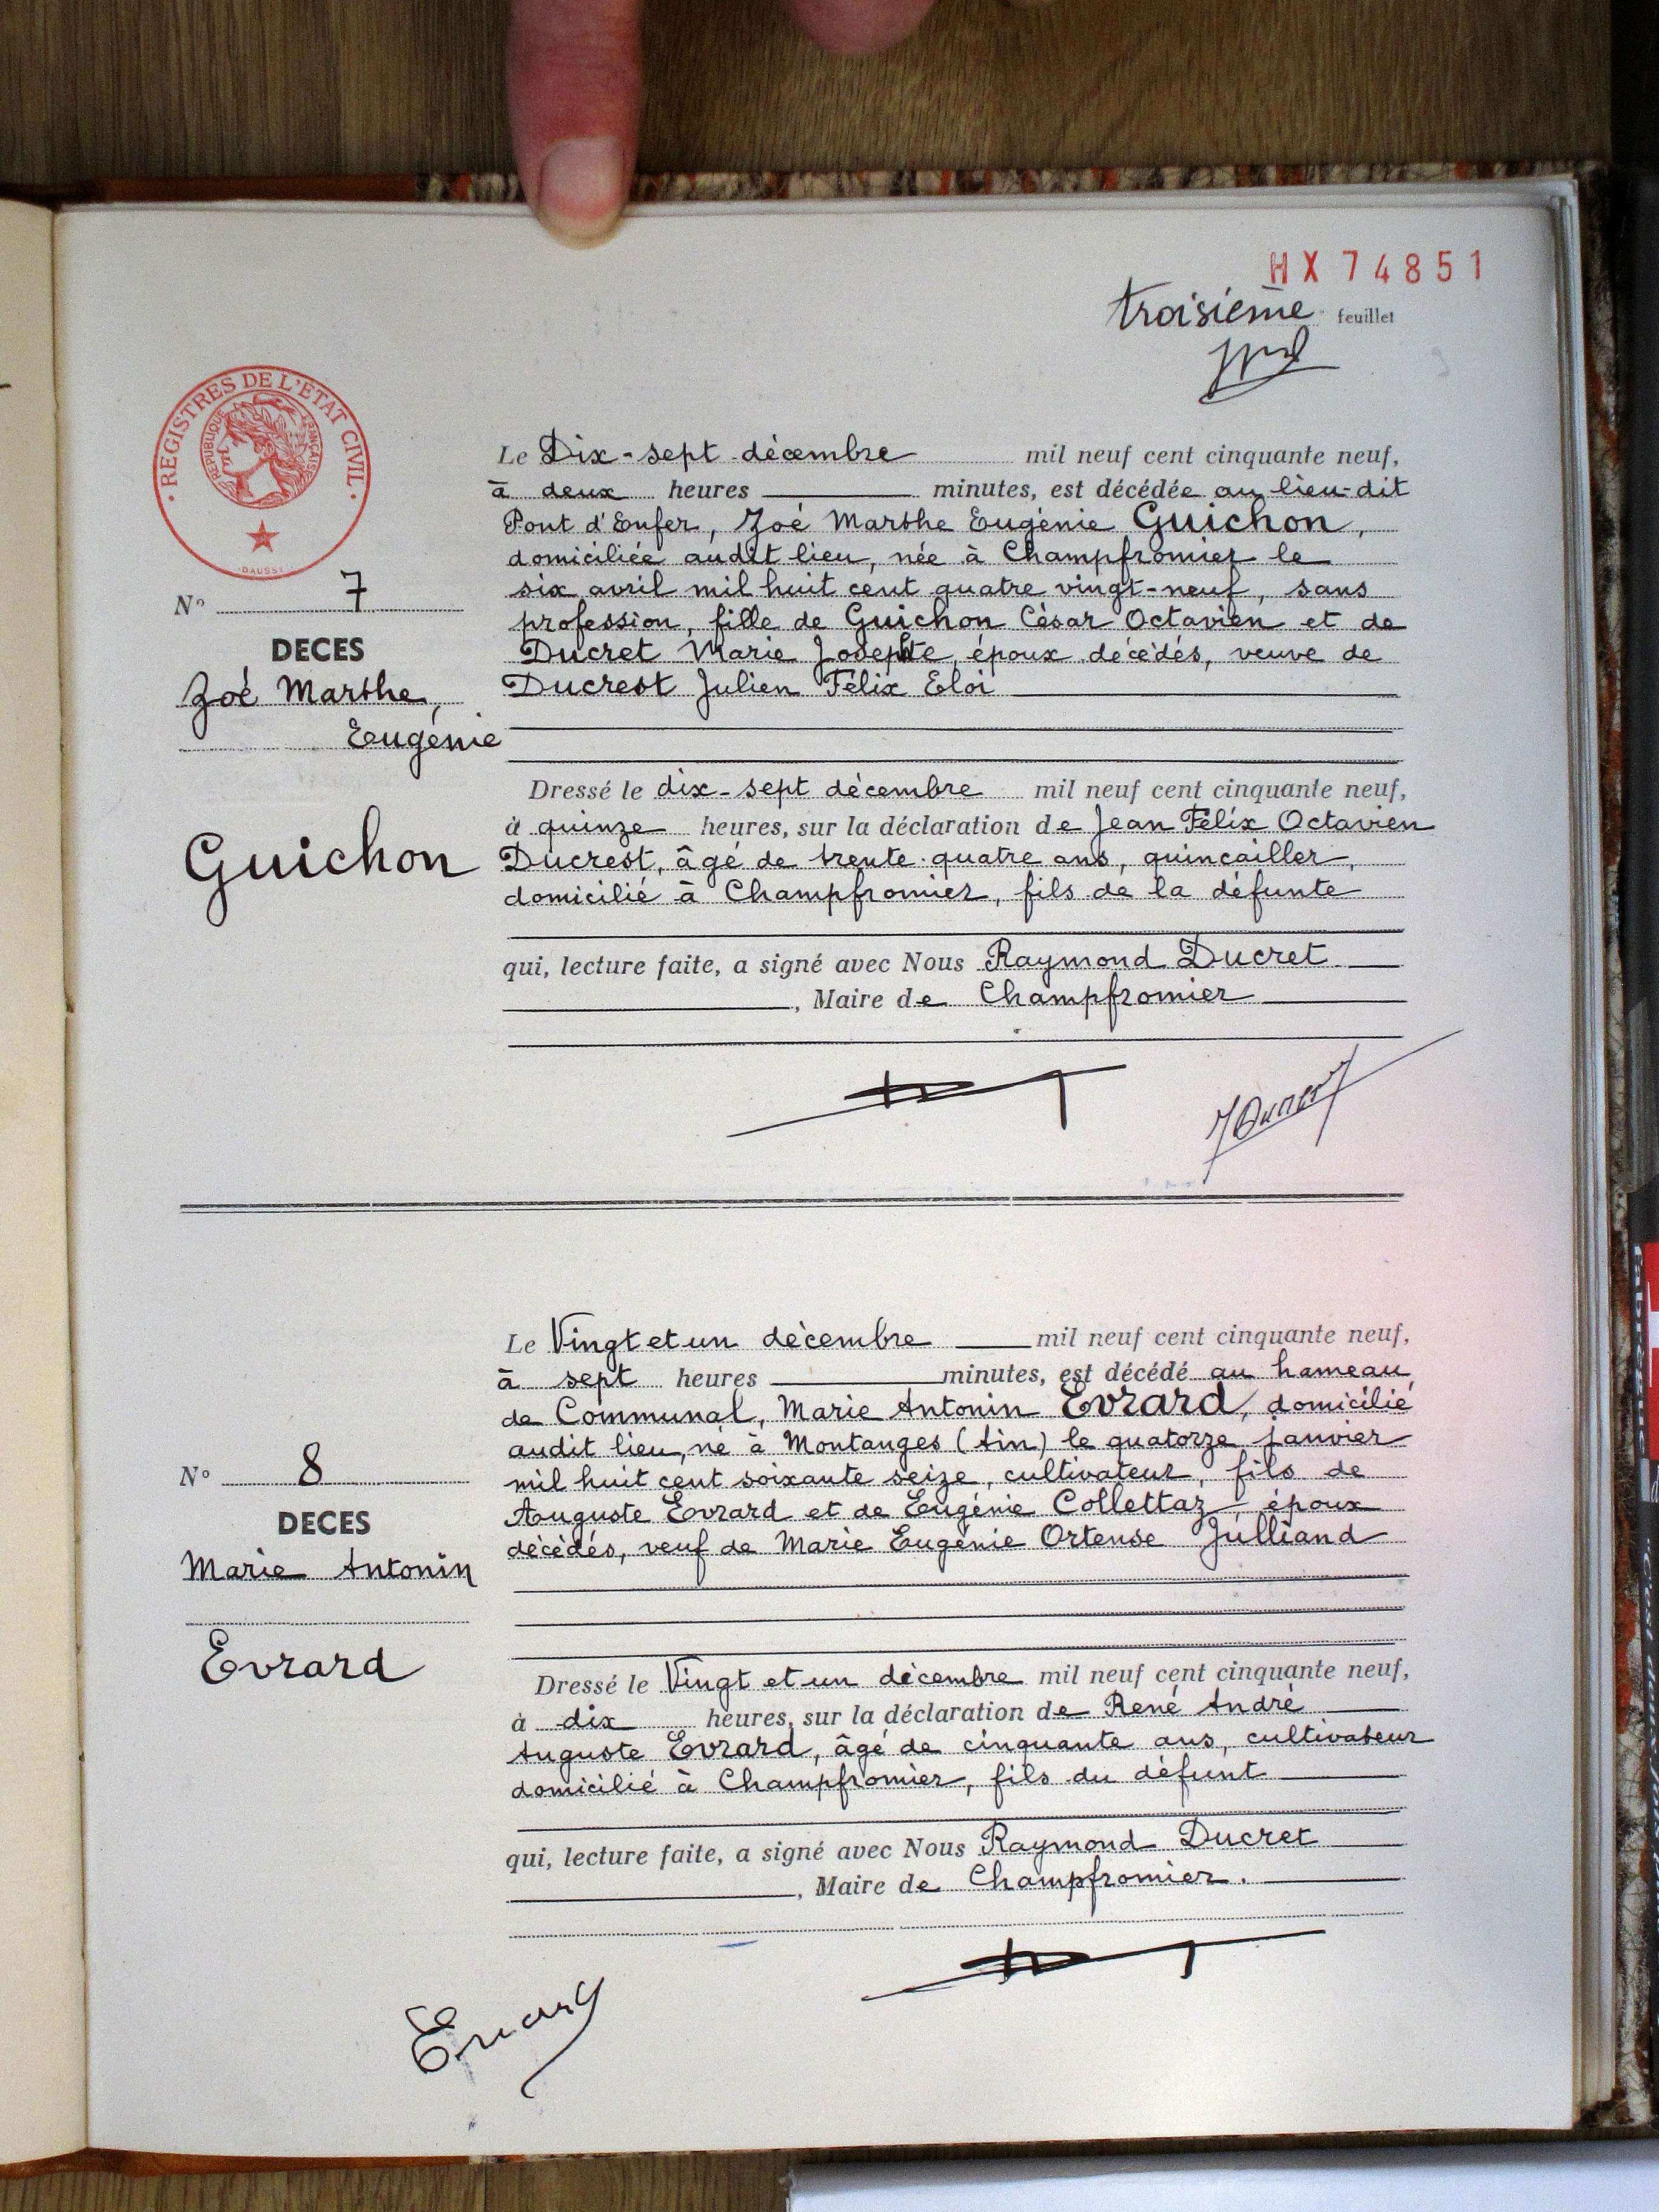 HX 74851
troisième feuillet
REGISTRES DE L'ETAT CIVIL
REPUBLIQUE FRANÇAISE
DAUSSY
Le Dix-sept décembre mil neuf cent cinquante neuf,
à deux heures minutes, est décédée au lieu-dit
Pont d'Enfer, Zoé Marthe Eugénie Guichon,
domiciliée audit lieu, née à Champfromier le
six avril mil huit cent quatre vingt-neuf, sans
profession, fille de Guichon César Octavien et de
Ducret Marie Josephte, époux décédés, veuve de
Ducrest Julien Félix Eloi
N° 7
DECES
Zoé Marthe,
Eugénie
Guichon
Dressé le dix-sept décembre mil neuf cent cinquante neuf,
à quinze heures, sur la déclaration de Jean Félix Octavien
Ducrest, âgé de trente-quatre ans, quincailler,
domicilié à Champfromier, fils de la défunte
qui, lecture faite, a signé avec Nous Raymond Ducret
, Maire de Champfromier
Le Vingt et un décembre mil neuf cent cinquante neuf,
à sept heures minutes, est décédé au hameau
de Communal, Marie Antonin Evrard, domicilié
audit lieu, né à Montanges (Ain) le quatorze janvier
mil huit cent soixante seize, cultivateur, fils de
Auguste Evrard et de Eugénie Collettaz, époux
décédés, veuf de Marie Eugénie Ortense Julliand
N° 8
DECES
Marie Antonin
Evrard
Dressé le Vingt et un décembre mil neuf cent cinquante neuf,
à dix heures, sur la déclaration de René André
Auguste Evrard, âgé de cinquante ans, cultivateur
domicilié à Champfromier, fils du défunt
qui, lecture faite, a signé avec Nous Raymond Ducret
, Maire de Champfromier.
Evrard